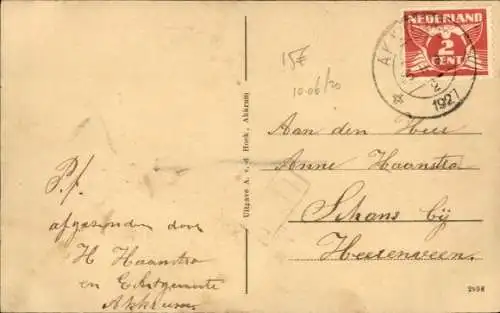 NEDERLAND
2
CENT
AK
1927
15€
10-06/20
Aan den Heer
Anne Haanstra
Schans bij
Heerenveen.
Uitgave A. v. d. Hoek, Akkrum
P.f.
afgezonden door
H Haanstra
en Echtgenoote
Akkrum